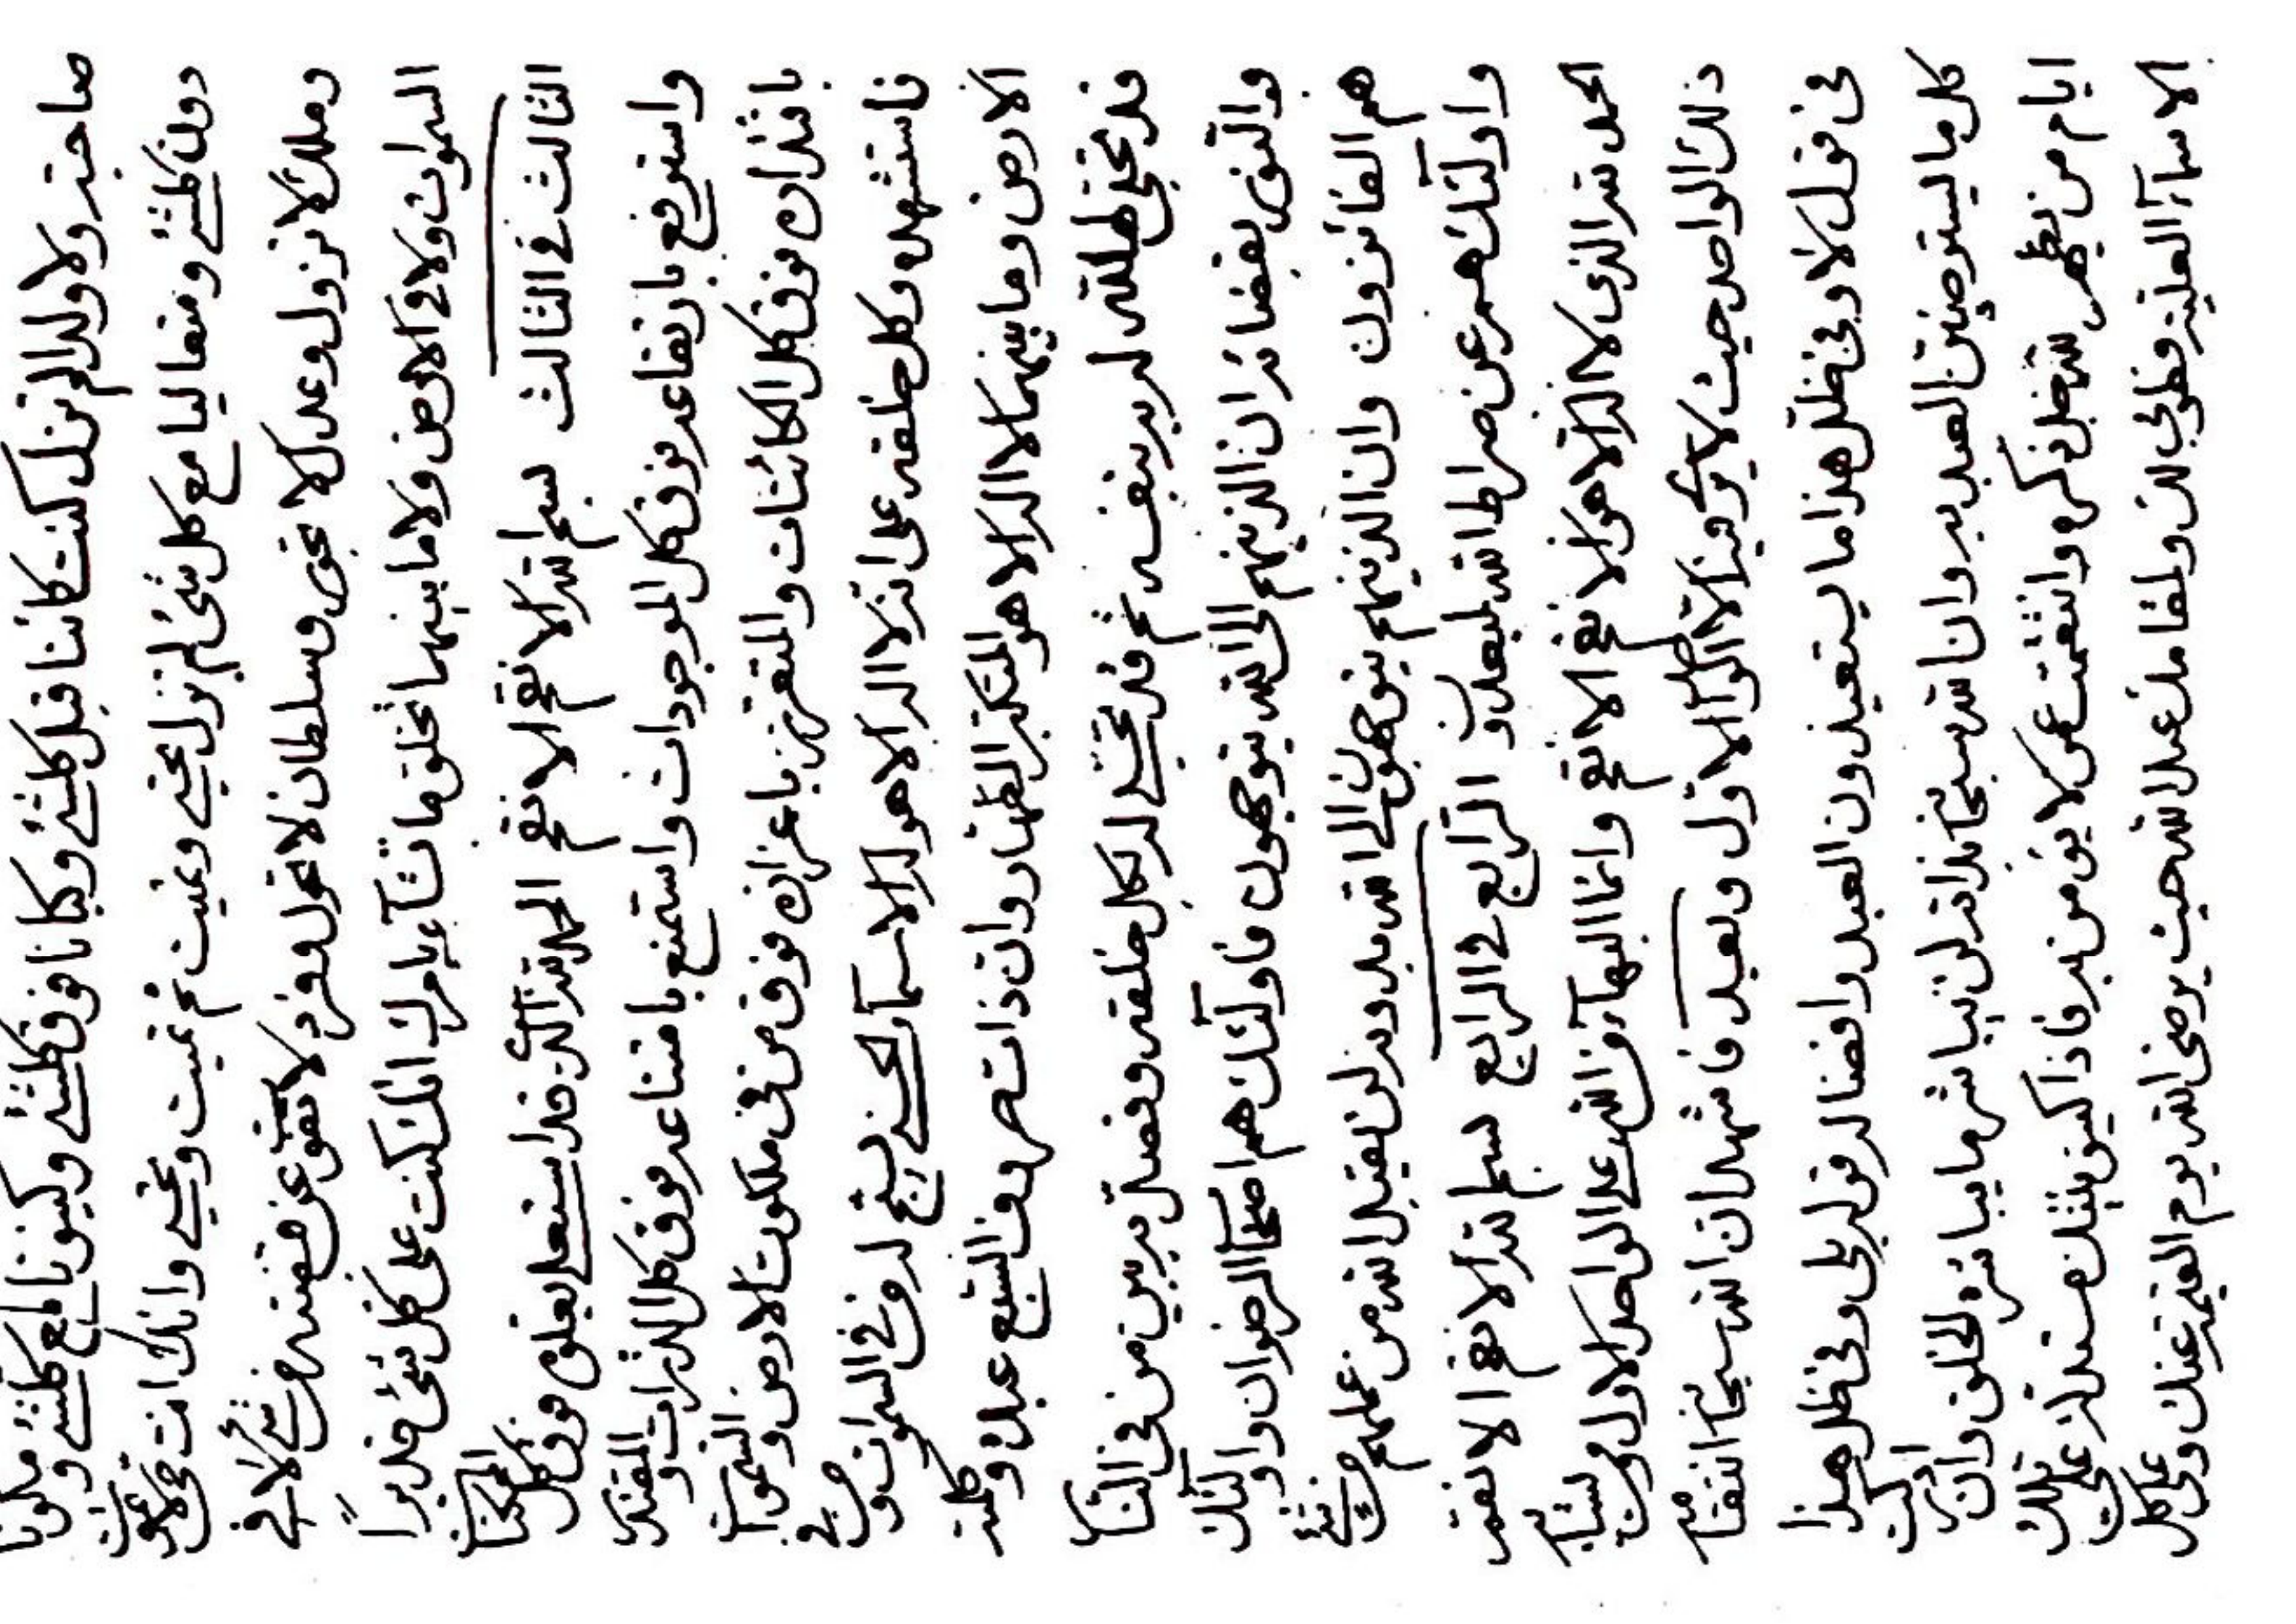 صاحبة ولا ولدا لم تزل كنت كائنا قبل كلشئ وكيانا فوق كلشئ وكينونا لمع كلشئ ومكونا
دون كلشئ ومتعاليا مع كل شئ لم تزل تحيي وتميت ثم تميت وتحيي وانك انت حي لا تموت
وملك لا تزول وعدل لا تجور وسلطان لا تحول وفرد لا تفوت عن قبضتك من شئ لا في
السموات ولا في الارض ولا ما بينهما تخلق ما تشآء بامرك انك كنت على كل شئ قديرا
الثالث في الثالث بسم الله الاقع الاقع الحمد لله الذي قد استعلى بعلوه فوق كل الممكنات
واسترفع بارتفاعه فوق كل الموجودات واستمنع بامتناعه فوق كل الذرات والمقتدر
باقتداره فوق كل الكائنات والمتعزز باعزازه فوق من في ملكوت الارض والسموات
فاستشهده وكل خلقه على انه لا اله الا هو له الاسمآء الحسنى يسبح له من في السموات ومن في
الارض وما بينهما لا اله الا هو المتكبر القهار وان ذات حروف السبع عبده وكلمته
قد تجلى الله له به بنفسه ثم قد تجلى له لكل خلقه وفصل به بين من في النار
والنور بقضائه ان الذينهم الى الله يتوجهون فاولئك هم اصحاب الرضوان واولئك
هم الفائزون وان الذينهم يتوجهون الى الله بدونه لن يقبل الله من عملهم من شئ
واولئك هم عن صراط الله لمبعدون الرابع في الرابع بسم الله الاقع الاقع
الحمد لله الذي لا اله الا هو الاقع الاقع وانما البهآء من الله على الواحد الاول ومن يشابه
ذلك الواحد حيث لا يرى فيه الا الواحد الاول وبعد فاشهد ان الله سبحانه
في قول لا وفي ظل هذا ما يستعيذون العبد وافضاله قول بلى وفي ظل هذا
كل ما يستوصين العبد به وان الله سبحانه لن يباشر ما يباشره الخلق وان ادركت
ايام من يظهره الله ظل ذكره وانقطعت عمن لا يؤمن به فاذا كينونيتك مستدلة على تلك
الاسمآء العلية فطوبى لك ولمقامك عند الله حيث يرضى الله يوم القيمة عنك وعن كل